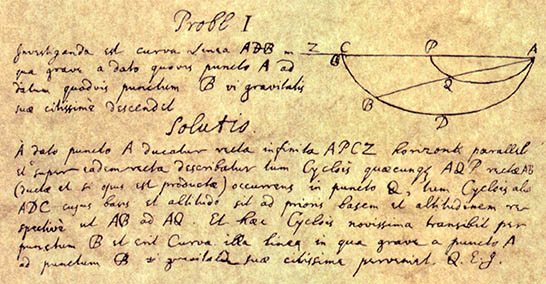 Probl I
Investiganda est curva Linea ADB in
qua grave a dato quovis puncto A ad
datum quodvis punctum B vi gravitatis
suæ citissimè descendet
Z C P A
B Q
B D
Solutio.
A dato puncto A ducatur recta infinita APCZ horizonti parallela
et super eadem recta describatur tum Cyclois quæcunque AQP rectæ AB
(ductæ et si opus est productæ) occurrens in puncto Q, tum Cyclois alia
ADC cujus basis et altitudo sit ad prioris basem et altitudinem re-
spectivè ut AB ad AQ. Et hæc Cyclois novissima transibit per
punctum B et erit Curva illa linea in qua grave a puncto A
ad punctum B vi gravitatis suæ citissime perveniet. Q.E.I.